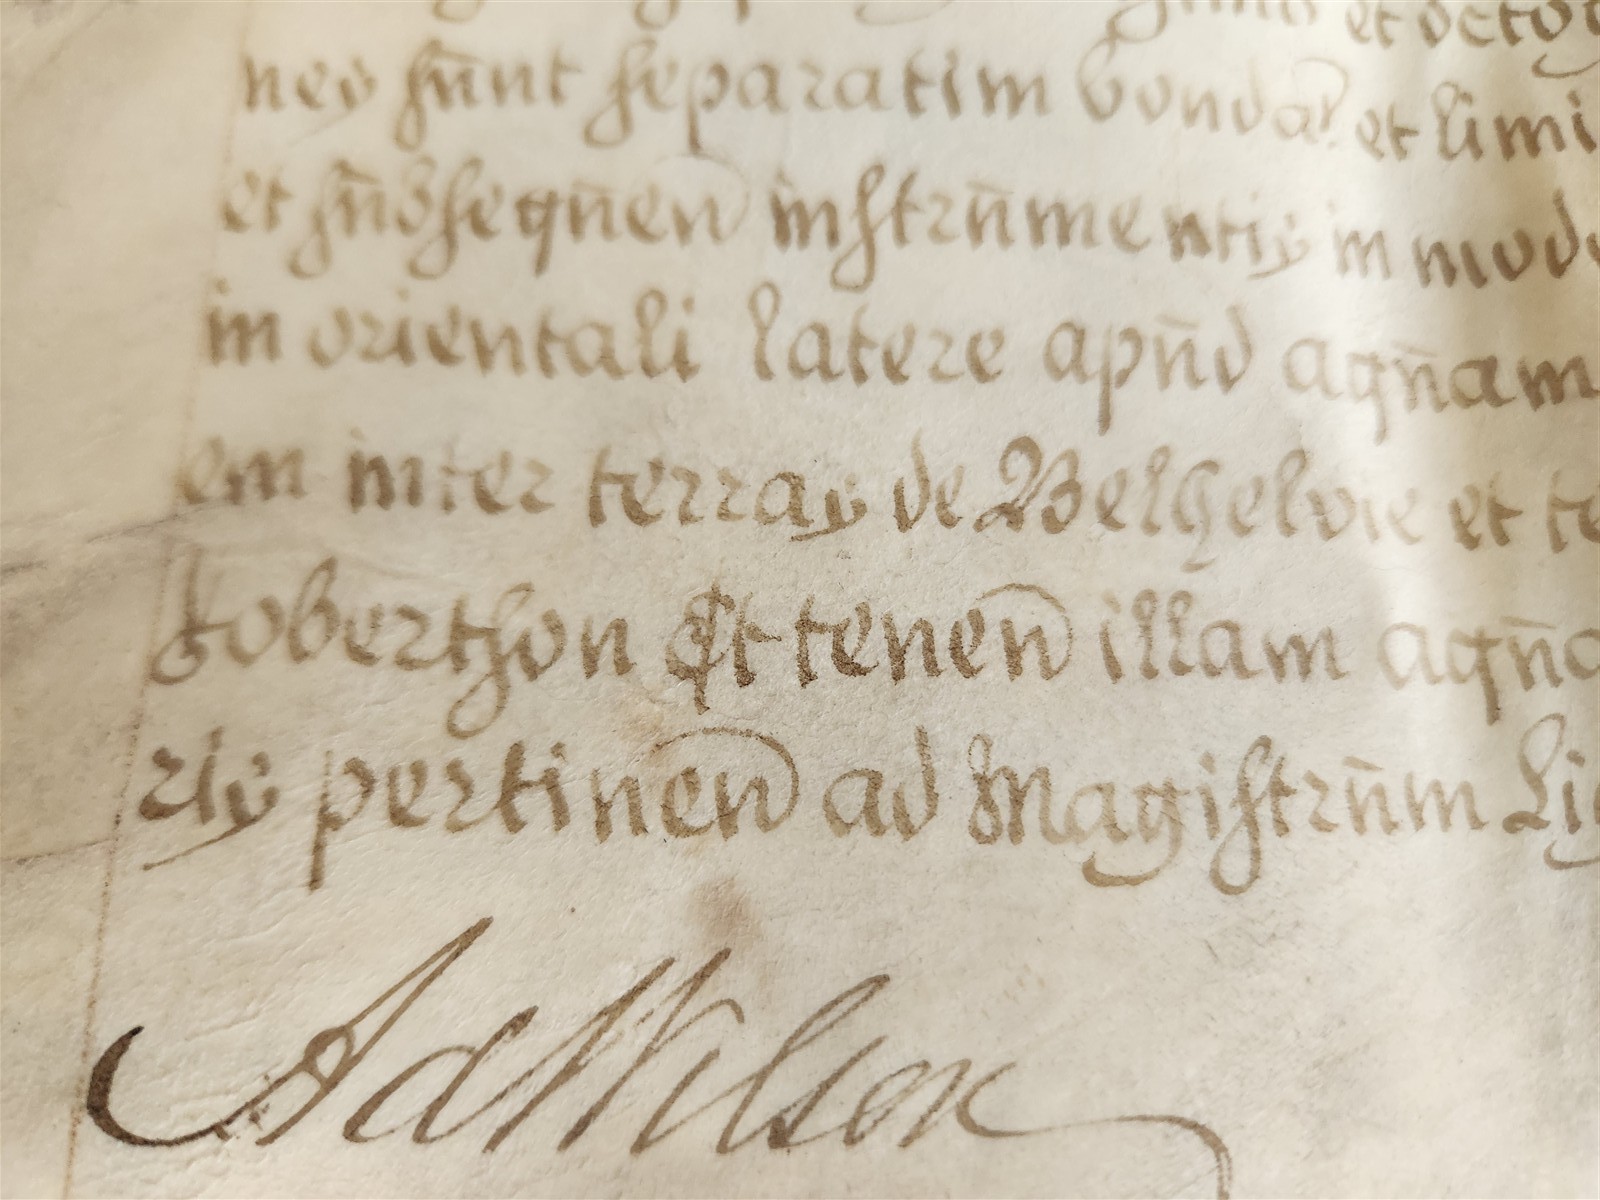 et octog
nes sunt separatim bonda et limi
et subsequen instrumentis in modu
in orientali latere apud aquam
em inter terras de Belhelvie et te
Robertson Et tenen illam aqua
ris pertinen ad Magistrum Lig
Ad Wilson